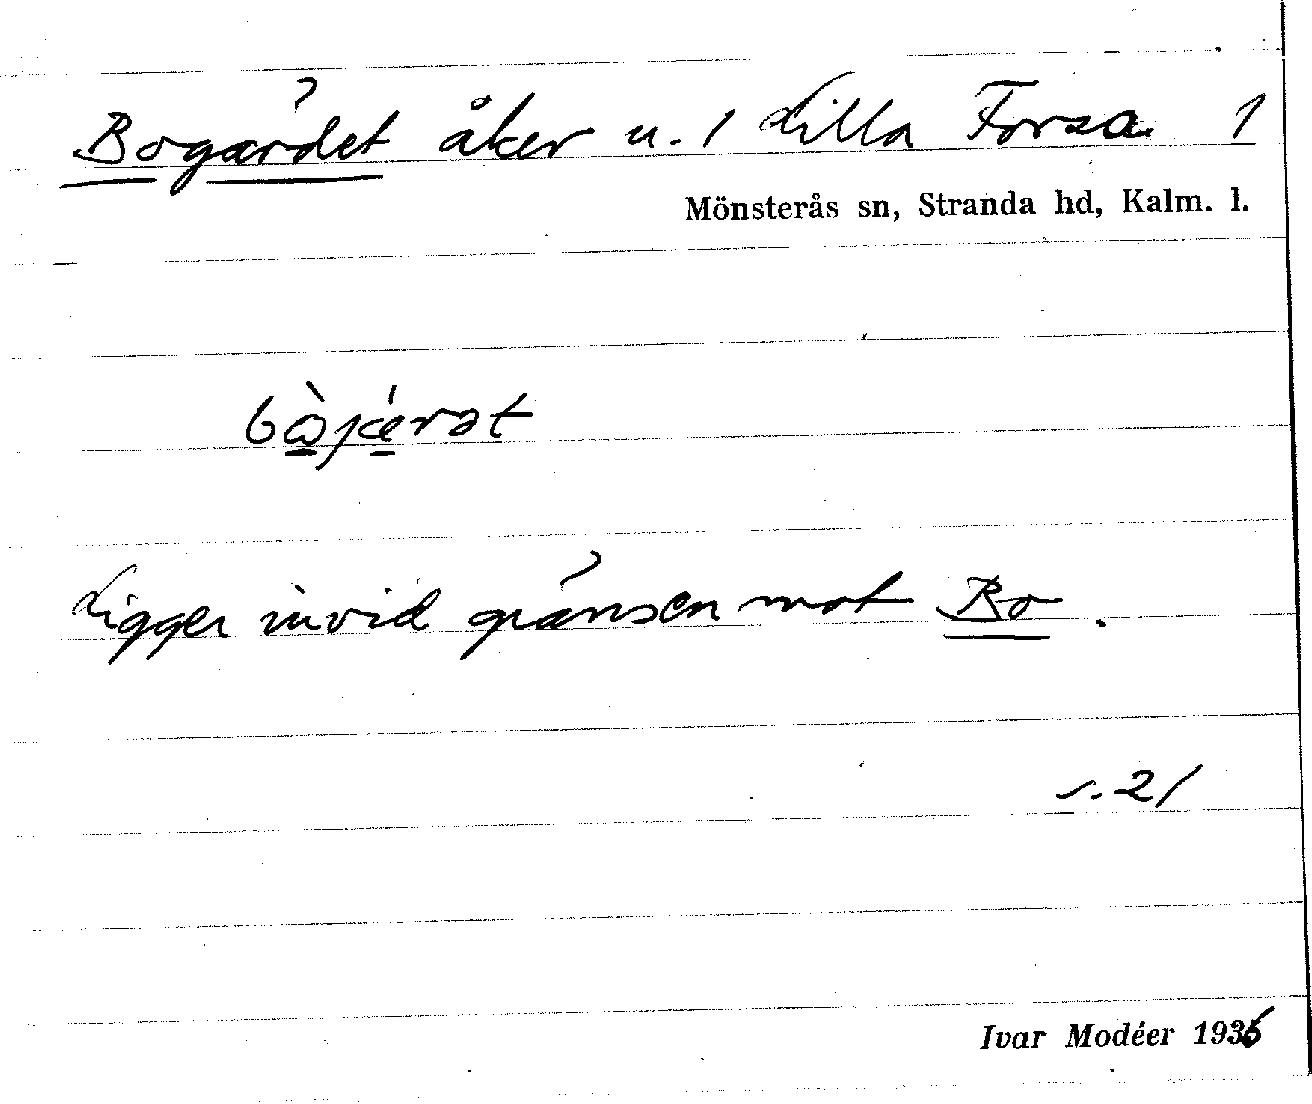 Bogärdet åker u. 1 Lilla Forsa 1
Mönsterås sn, Stranda hd, Kalm. l.
Ligger invid gränsen mot Bo.
s. 21
Ivar Modéer 1936